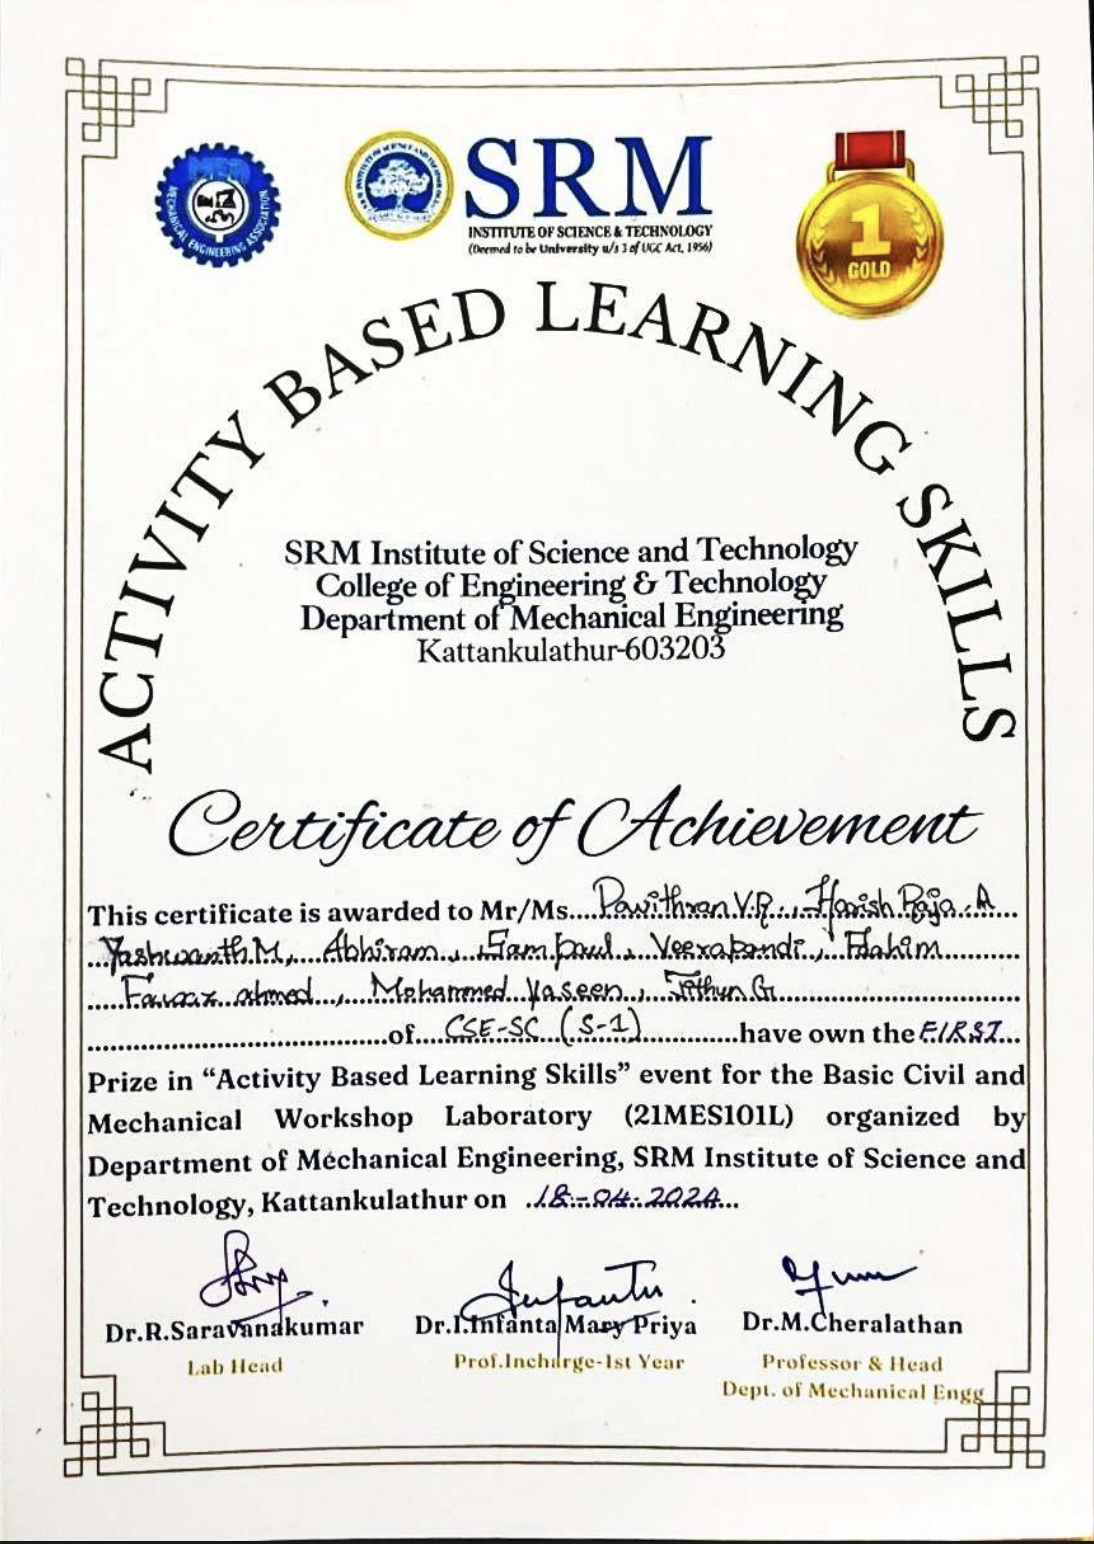 MECHANICAL ENGINEERING ASSOCIATION
SRM
INSTITUTE OF SCIENCE & TECHNOLOGY
(Deemed to be University u/s 3 of UGC Act, 1956)
1
GOLD
ACTIVITY BASED LEARNING SKILLS
SRM Institute of Science and Technology
College of Engineering & Technology
Department of Mechanical Engineering
Kattankulathur-603203
Certificate of Achievement
This certificate is awarded to Mr/Ms....Pavithran V.R..., Harish Raja.A....
...Yashwanth.M,....Abhiram..., Sam paul., Veerapandi.,
ahmed..., Mohammed Yaseen.,
...of....CSE-SC (S-1)...have own the FIRST...
Prize in “Activity Based Learning Skills” event for the Basic Civil and
Mechanical Workshop Laboratory (21MES101L) organized by
Department of Mechanical Engineering, SRM Institute of Science and
Technology, Kattankulathur on ..18-04-2024...
Dr.R.Saravanakumar Dr.I.Infanta Mary Priya Dr.M.Cheralathan
Lab Head Prof.Incharge-Ist Year Professor & Head
Dept. of Mechanical Engg